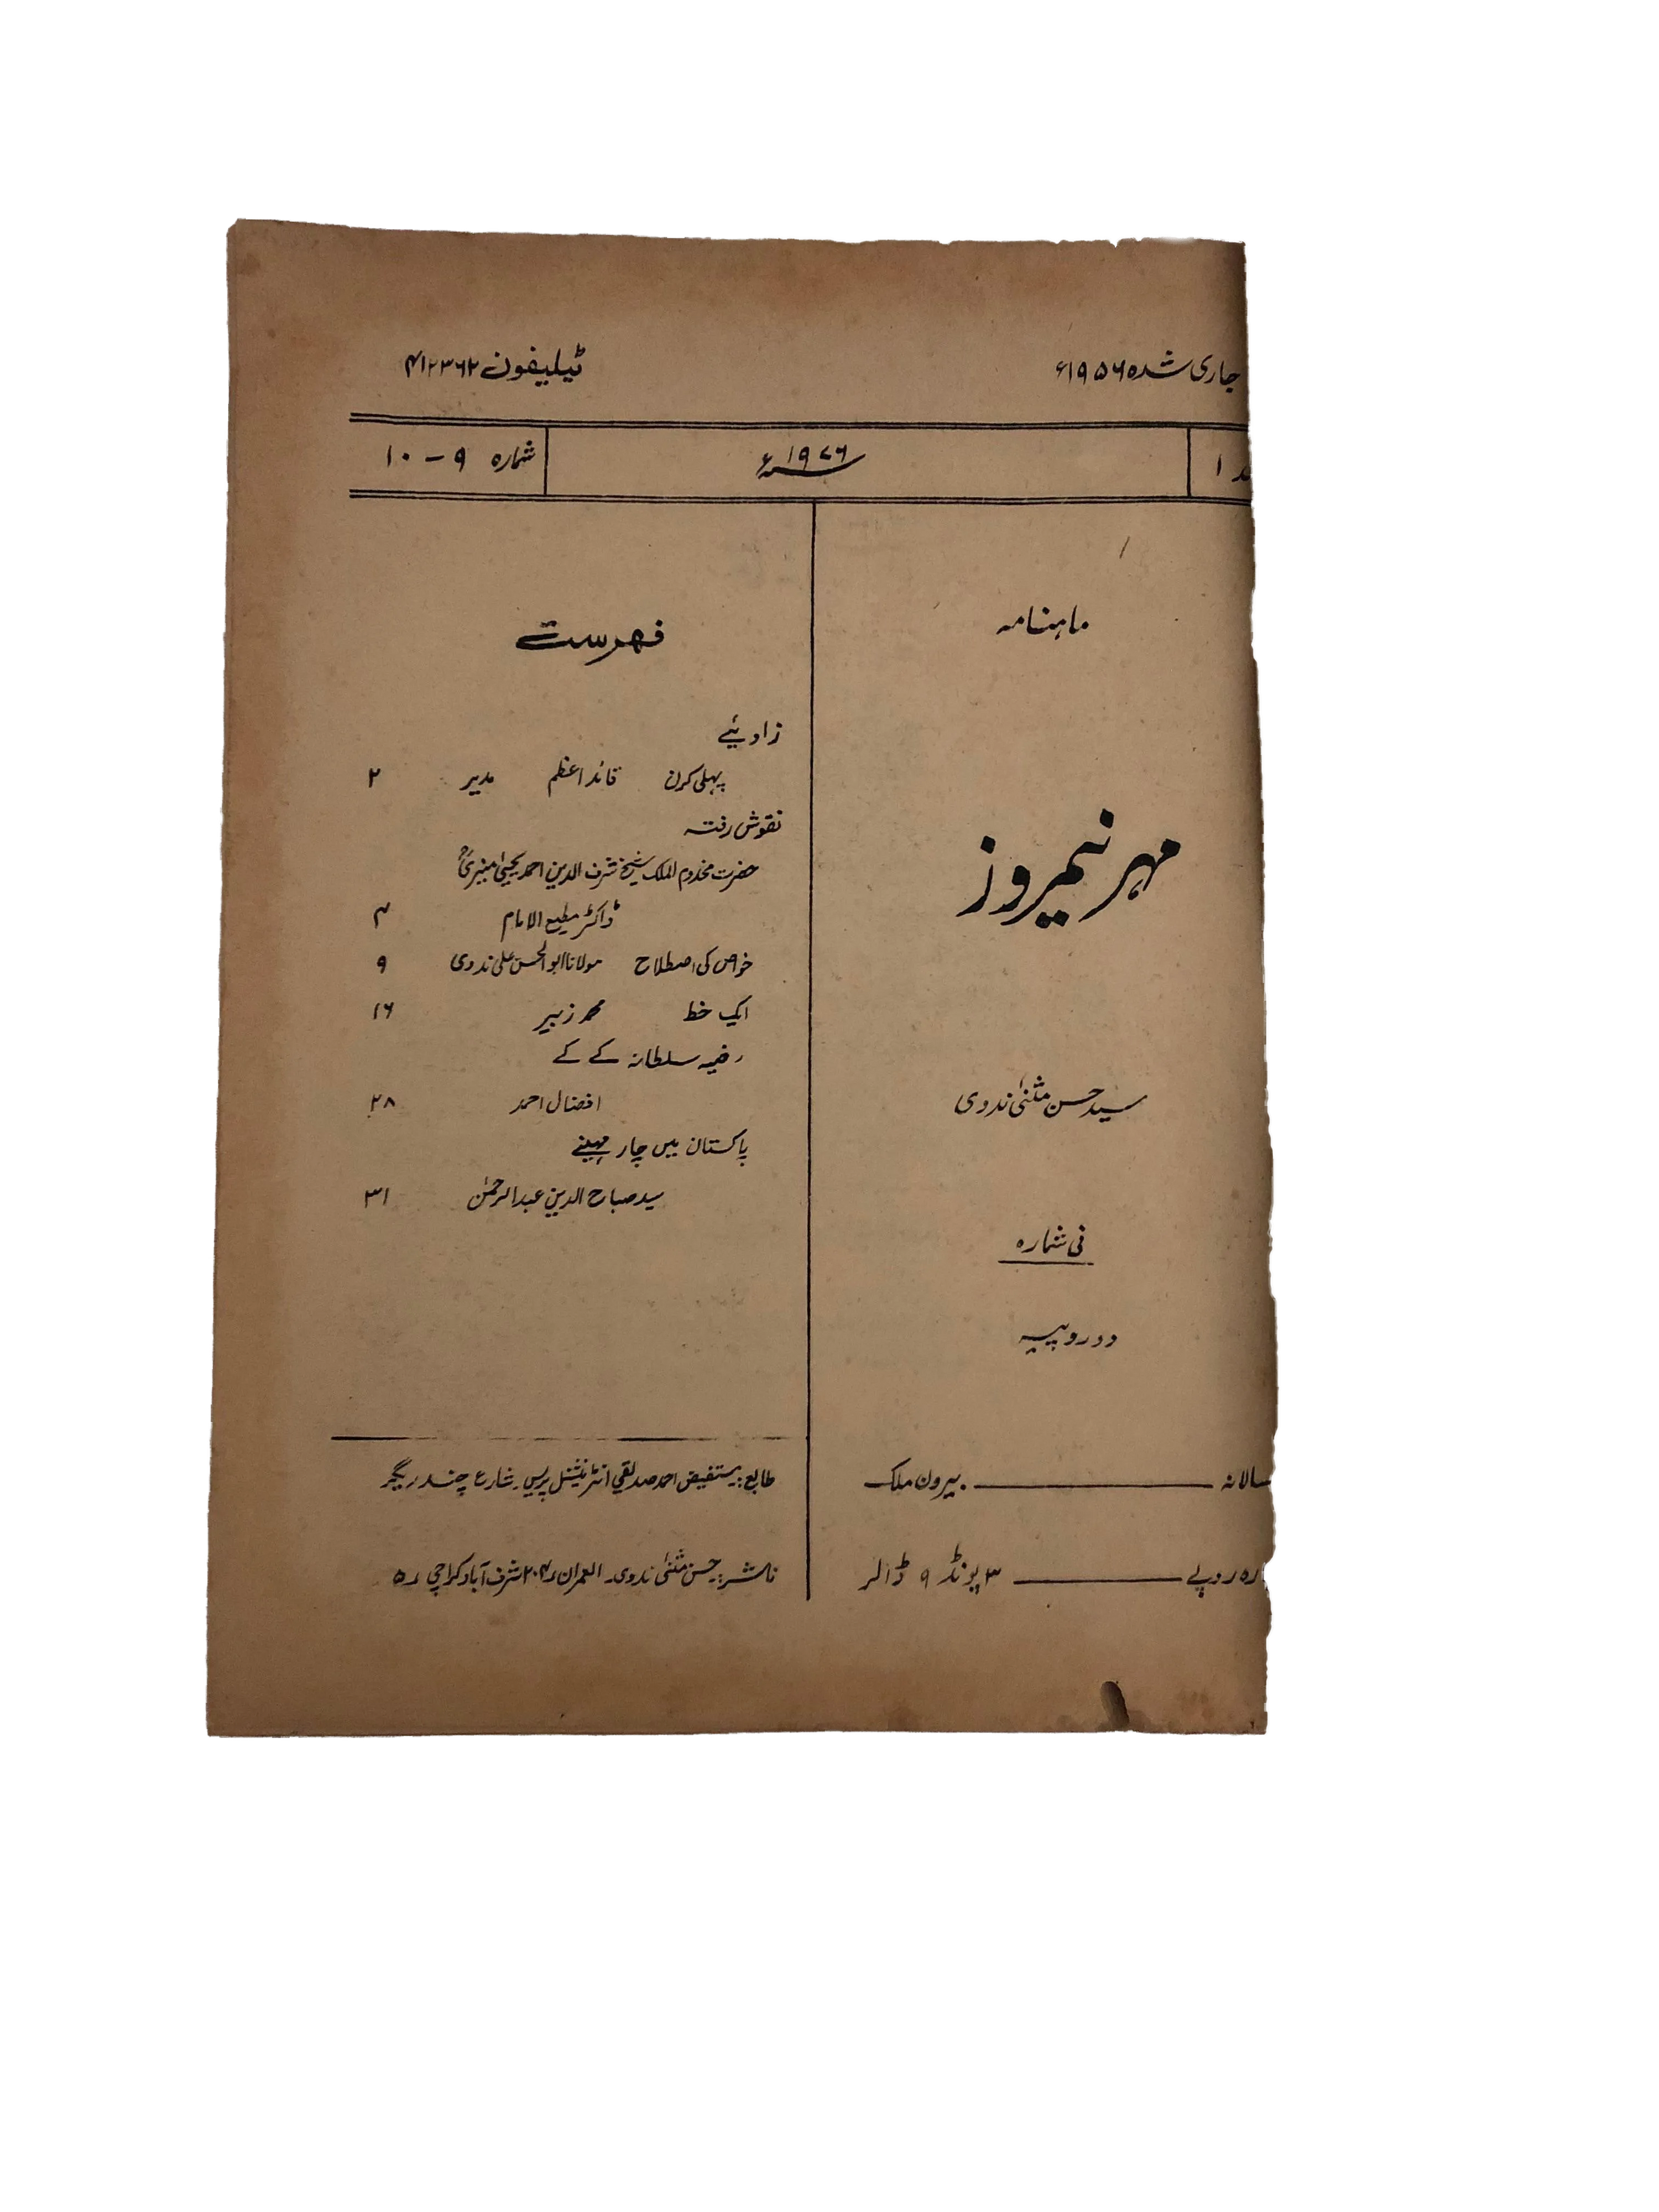 جاری شدہ ۱۹۵۶ء
ٹیلیفون ۴۱۲۳۶۲
۱
۱۹۷۶ء
شمارہ ۹ – ۱۰
ماہنامہ
مہر نیمروز
سید حسن مثنیٰ ندوی
فی شمارہ
دو روپیہ
سالانہ ــــــــ بیرون ملک
روپے ــــــــ ۳ پونڈ ۹ ڈالر
فہرست
زاویئے
پہلی کرن قائد اعظم مدیر ۲
نقوش رفتہ
حضرت مخدوم الملک شیخ شرف الدین احمد یحییٰ منیریؒ
ڈاکٹر مطیع الامام ۳
خواص کی اصطلاح مولانا ابو الحسن علی ندوی ۹
ایک خط محمد زبیر ۱۶
رضیہ سلطانہ کے کے
افضال احمد ۲۸
پاکستان میں چار مہینے
سید صباح الدین عبدالرحمٰن ۳۱
طابع:۔ مستفیض احمد صدیقی انٹرنیشنل پریس۔ شارع چندریگر
ناشر:۔ حسن مثنیٰ ندوی۔ العمران ۲۰۴ شرف آباد کراچی ۵